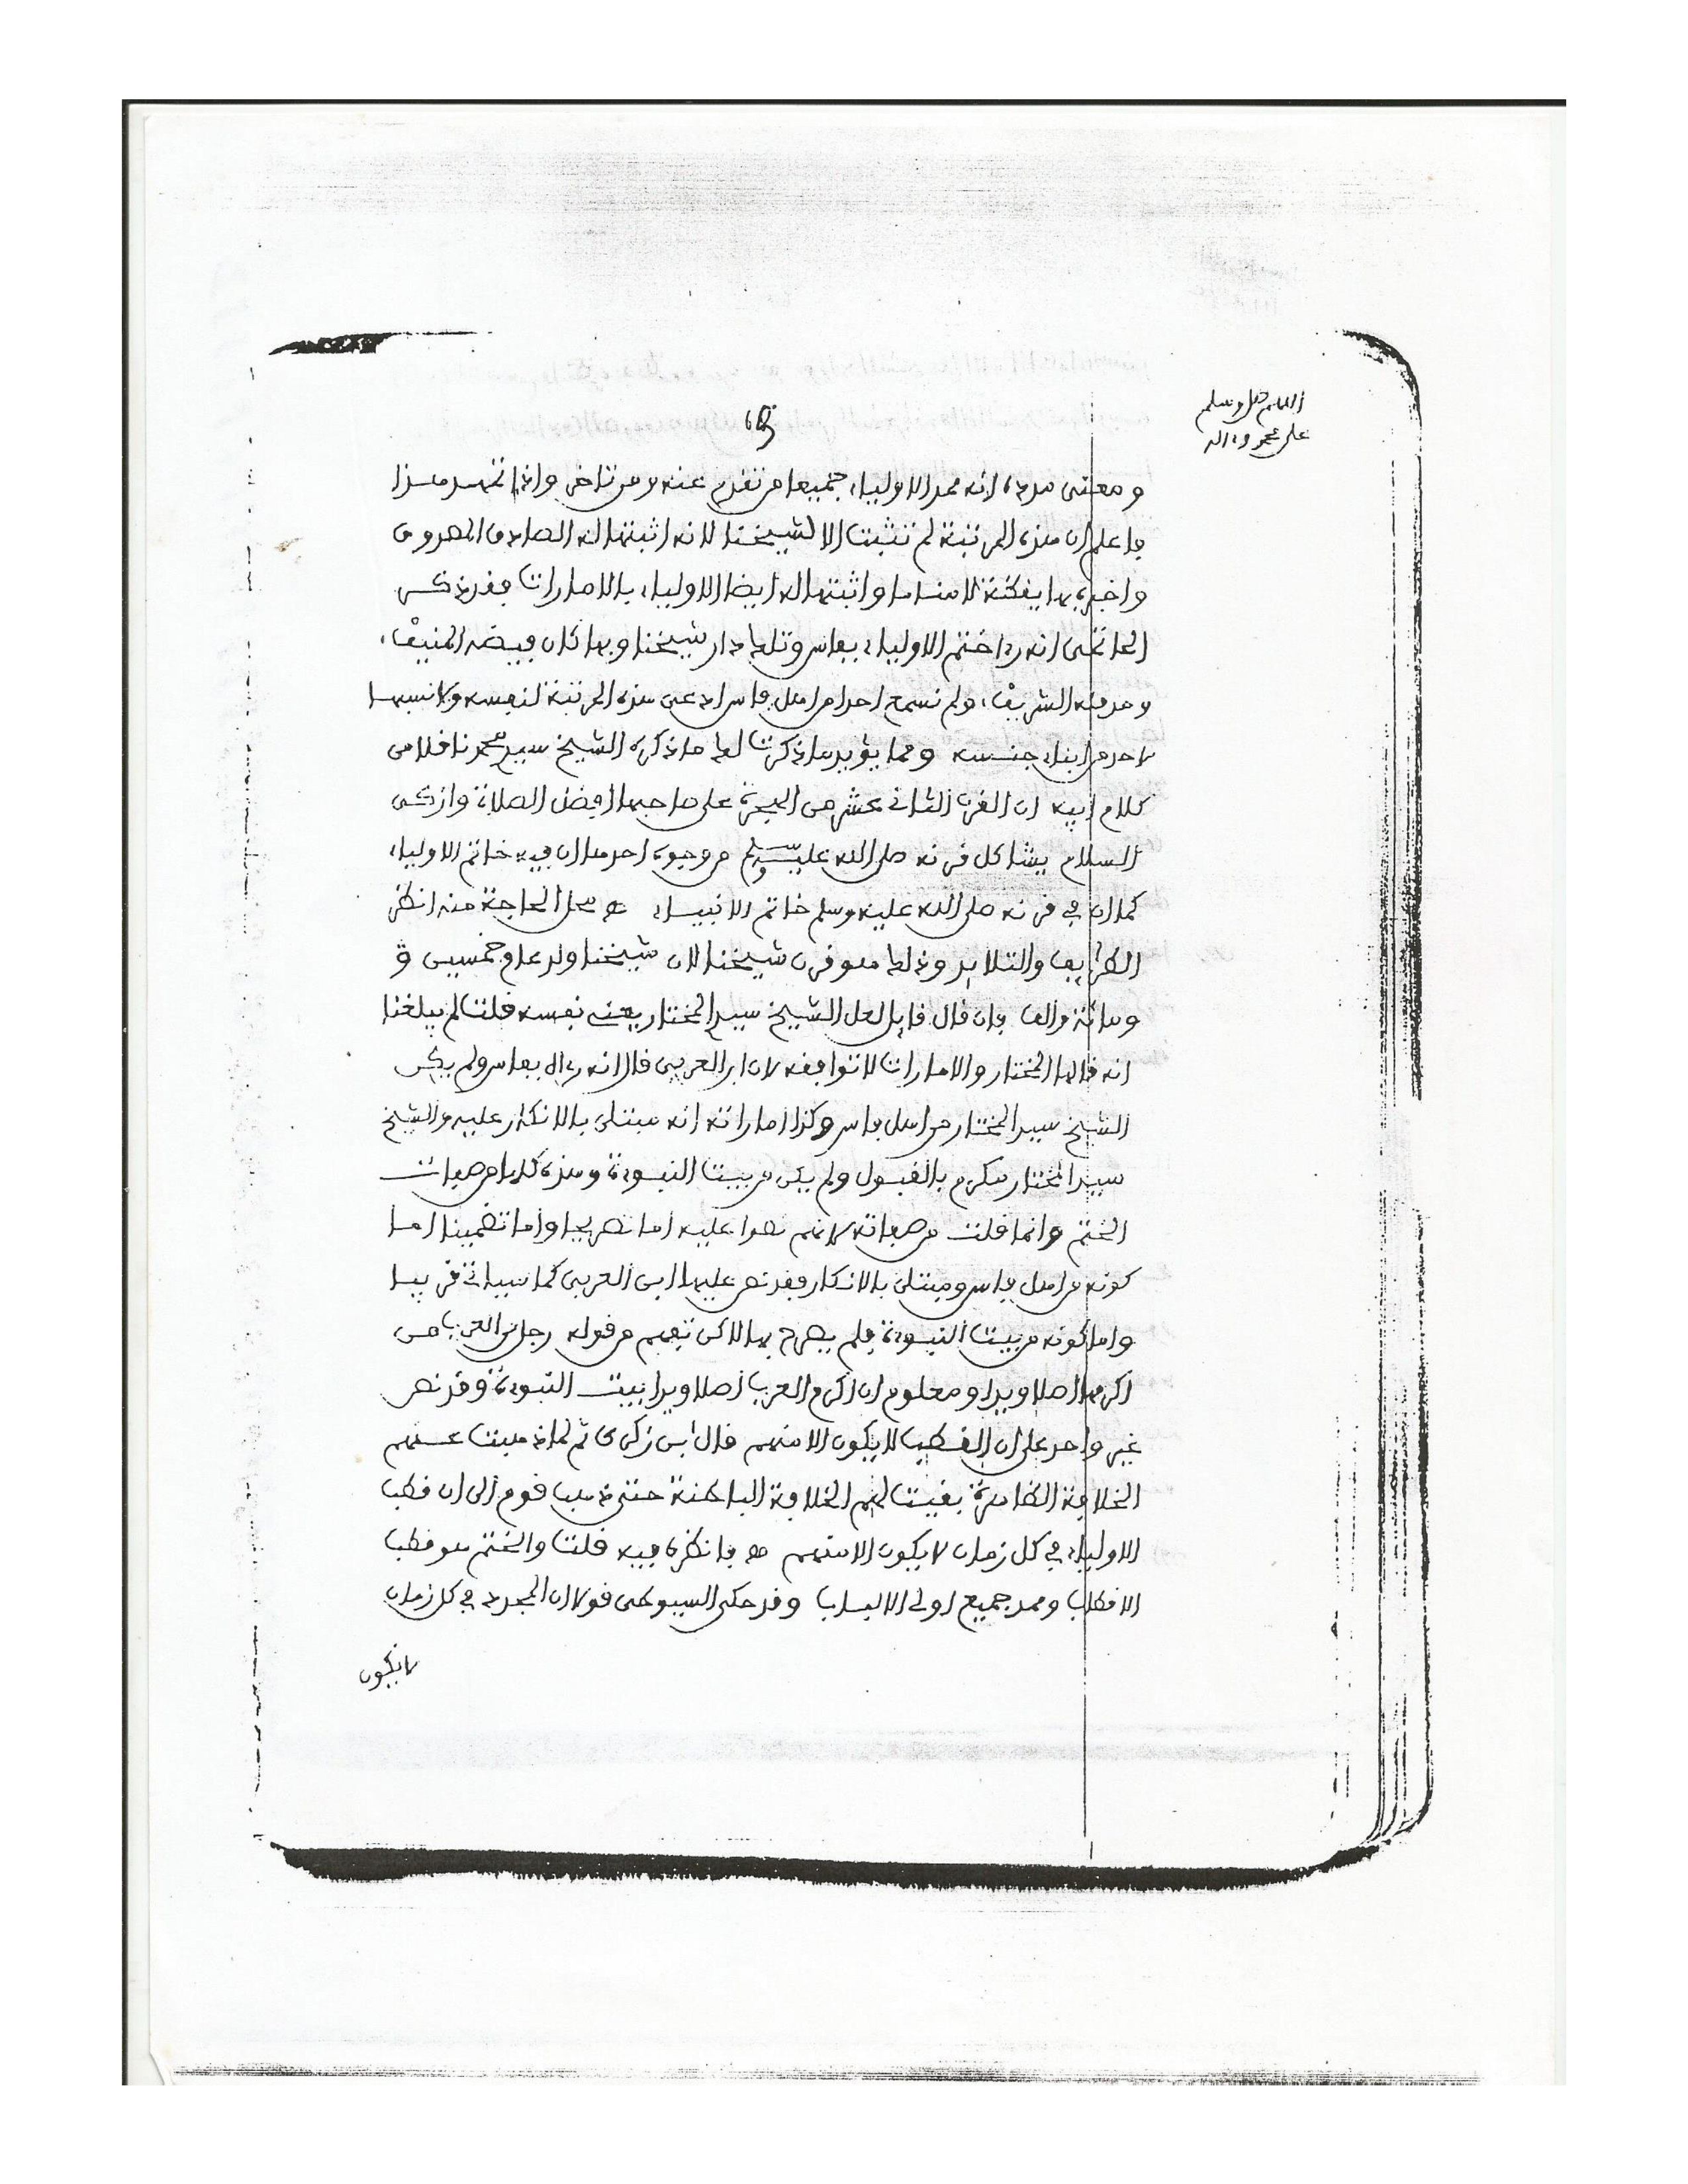 اللهم صل وسلم
على محمد وءاله
65
ومعنى مدده لانه ممد الاولياء جميعا من تقدم عنه ومن تاخر واذا تمهد هذا
فاعلم ان هذه المرتبة لم تثبت الا لشيخنا لانه اثبتها له الصادق المصدوق
واخبره بها يقظة لا مناما واثبتها له ايضا الاولياء بالامارات فقد ذكر
الحاتمى انه رءا ختم الاولياء بفاس وتلك دار شيخنا وبها كان فيضه المنيف،
ومدفنه الشريف، ولم نسمع احدا من اهل فاس ادعى هذه المرتبة لنفسه ولا نسبها
لاحد من ابناء جنسه ومما يؤيد ما ذكرت لك ما ذكره الشيخ سيد محمد ناقلا من
كلام ابيه ان القرن الثانى عشر من الهجرة على صاحبها افضل الصلاة وازكى
السلام يشاكل قرنه صلى الله عليه وسلم من وجوه احدها ان فيه خاتم الاولياء
كما ان في قرنه صلى الله عليه وسلم خاتم الانبياء هـ محل الحاجة منه انظر
الطرايف والتلايد وذلك هو قرن شيخنا لان شيخنا ولد عام خمسين و
ومائة والف فان قال قايل لعل الشيخ سيد المختار يعنى نفسه قلت لم يبلغنا
انه قالها المختار والامارات لا توافقه لان ابن العربى قال انه رءاه بفاس ولم يكن
الشيخ سيد المختار من اهل فاس وكذا اماراته انه مبتلى بالانكار عليه والشيخ
سيد المختار مكرم بالقبول ولم يكن من بيت النبوءة وهذه كلها من صفات
الختم وانما قلت من صفاته لانهم نصوا عليه اما تصريحا واما تضمينا اما
كونه من اهل فاس ومبتلى بالانكار فقد نص عليها ابن العربى كما سياتى قريبا
واما كونه من بيت النبوءة فلم يصرح بها لاكن تفهم من قوله رجل من العرب من
اكرمها اصلا ويدا ومعلوم ان اكرم العرب اصلا ويدا بيت النبوءة وقد نص
غير واحد على ان القطب لا يكون الا منهم قال ابن زكرى ثم لما ذهبت عنهم
الخلافة الظاهرة بقيت لهم الخلافة الباطنة حتى ذهب قوم الى ان قطب
الاولياء في كل زمان لا يكون الا منهم هـ فانظره فيه قلت والختم هو قطب
الاقطاب وممد جميع اولى الالباب وقد حكى السيوطى قولا ان المجدد في كل زمان
لا يكون